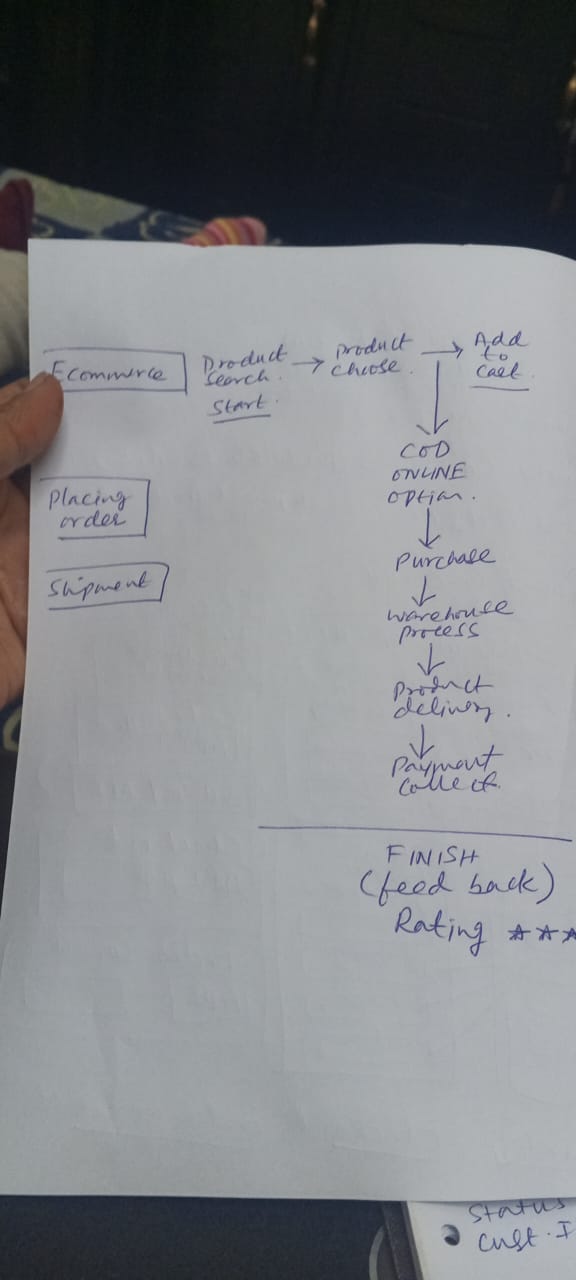 Ecommerce
Product search.
Start.
→ Product choose.
→ Add to Cart.
Placing order
Shipment
COD
ONLINE
option.
Purchase
Warehouse
process
Product
delivery.
Payment
collect.
FINISH
(feed back)
Rating ☆☆☆
Status
Cust. I